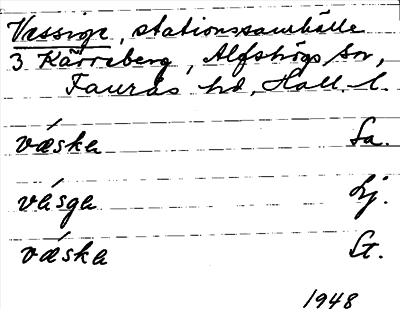 Vessige, stationssamhälle
3 Kärreberg, Alfshögs sn,
Faurås hd, Hall. l.
vǽska Sa.
vǽsga Lj.
vǽska St.
1948